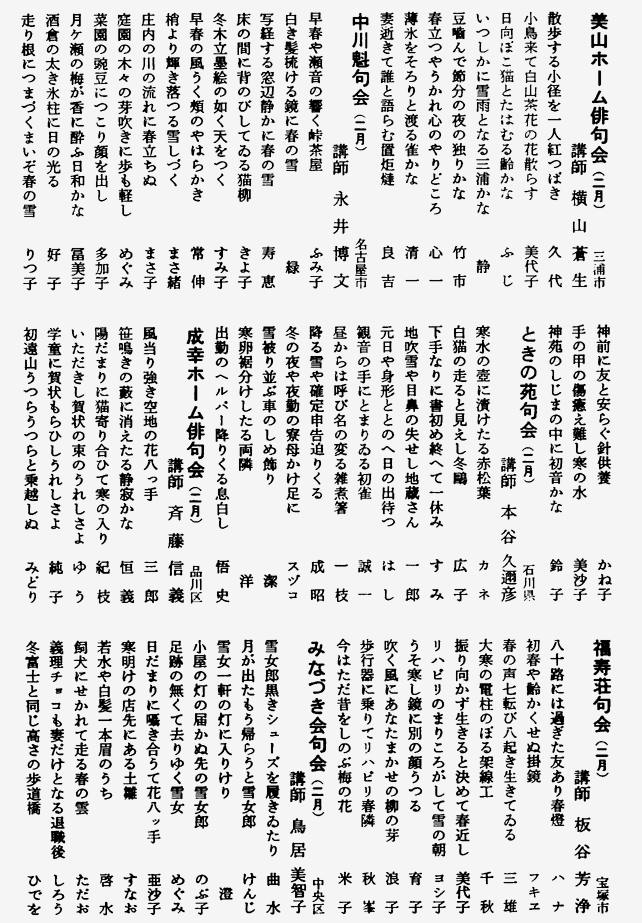 美山ホーム俳句会(二月)
三浦市
講師 横山蒼生
散歩する小径を一人紅つばき 久代
小鳥来て白山茶花の花散らす 美代子
日向ぼこ猫とたはむる齢かな ふじ
いつしかに雪雨となる三浦かな 静
豆噛んで節分の夜の独りかな 竹市
春立つやうかれ心のやりどころ 心一
薄氷をそろりと渡る雀かな 清一
妻逝きて誰と語らむ置炬燵 良吉
中川魁句会(二月)
名古屋市
講師 永井博文
早春や瀬音の響く峠茶屋 ふみ子
白き髪梳ける鏡に春の雪 緑
写経する窓辺静かに春の雪 寿恵
床の間に背のびしてゐる猫柳 きよ子
冬木立墨絵の如く天をつく すみ子
早春の風うく頬のやはらかき 常伸
梢より輝き落つる雪しづく まさ緒
庄内の川の流れに春立ちぬ まさ子
庭園の木々の芽吹きに歩も軽し めぐみ
菜園の豌豆につこり顔を出し 多加子
月ヶ瀬の梅が香に酔ふ日和かな 冨美子
酒倉の太き氷柱に日の光る 好子
走り根につまづくまいぞ春の雪 りつ子
神前に友と安らぐ針供養 かね子
手の甲の傷癒え難し寒の水 美沙子
神苑のしじまの中に初音かな 鈴子
ときの苑句会(二月)
石川県
講師 本谷久邇彦
寒水の壺に漬けたる赤松葉 カネ
白猫の走ると見えし冬鷗 広子
下手なりに書初め終へて一休み すみ
地吹雪や目鼻の失せし地蔵さん 一郎
元日や身形ととのへ日の出待つ はし
観音の手にとまりゐる初雀 誠一
昼からは呼び名の変る雑煮箸 一枝
降る雪や確定申告迫りくる 成昭
冬の夜や夜勤の寮母かけ足に スヅコ
雪被り並ぶ車のしめ飾り 潔
寒卵裾分けしたる両隣 洋
出勤のヘルパー降りくる息白し 悟史
成幸ホーム俳句会(二月)
品川区
講師 斉藤信義
風当り強き空地の花八ッ手 三郎
笹鳴きの藪に消えたる静寂かな 恒義
陽だまりに猫寄り合ひて寒の入り 紀枝
いただきし賀状の束のうれしさよ ゆう
学童に賀状もらひしうれしさよ 純子
初遠山うつらうつらと乗越しぬ みどり
福寿荘句会(二月)
宝塚市
講師 板谷芳浄
八十路には過ぎた友あり春燈 ハナ
初春や齢かくせぬ掛鏡 フキヱ
春の声七転び八起き生きてゐる 三雄
大寒の電柱のぼる架線工 千秋
振り向かず生きると決めて春近し 美代子
リハビリのまりころがして雪の朝 ヨシ子
うそ寒し鏡に別の顔うつる 育子
吹く風にあなたまかせの柳の芽 浪子
歩行器に乗りてリハビリ春隣 秋峯
今はただ昔をしのぶ梅の花 米子
みなづき会句会(二月)
中央区
講師 鳥居美智子
雪女郎黒きシューズを履きゐたり 曲水
月が出たもう帰らうと雪女郎 けんじ
雪女一軒の灯に入りけり 澄
小屋の灯の届かぬ先の雪女郎 のぶ子
足跡の無くて去りゆく雪女 めぐみ
日だまりに囁き合うて花八ッ手 亜沙子
寒明けの店先にある土雛 すなお
若水や白髪一本眉のうち 啓水
飼犬にせかれて走る春の雲 ただお
義理チョコも妻だけとなる退職後 しろう
冬富士と同じ高さの歩道橋 ひでを